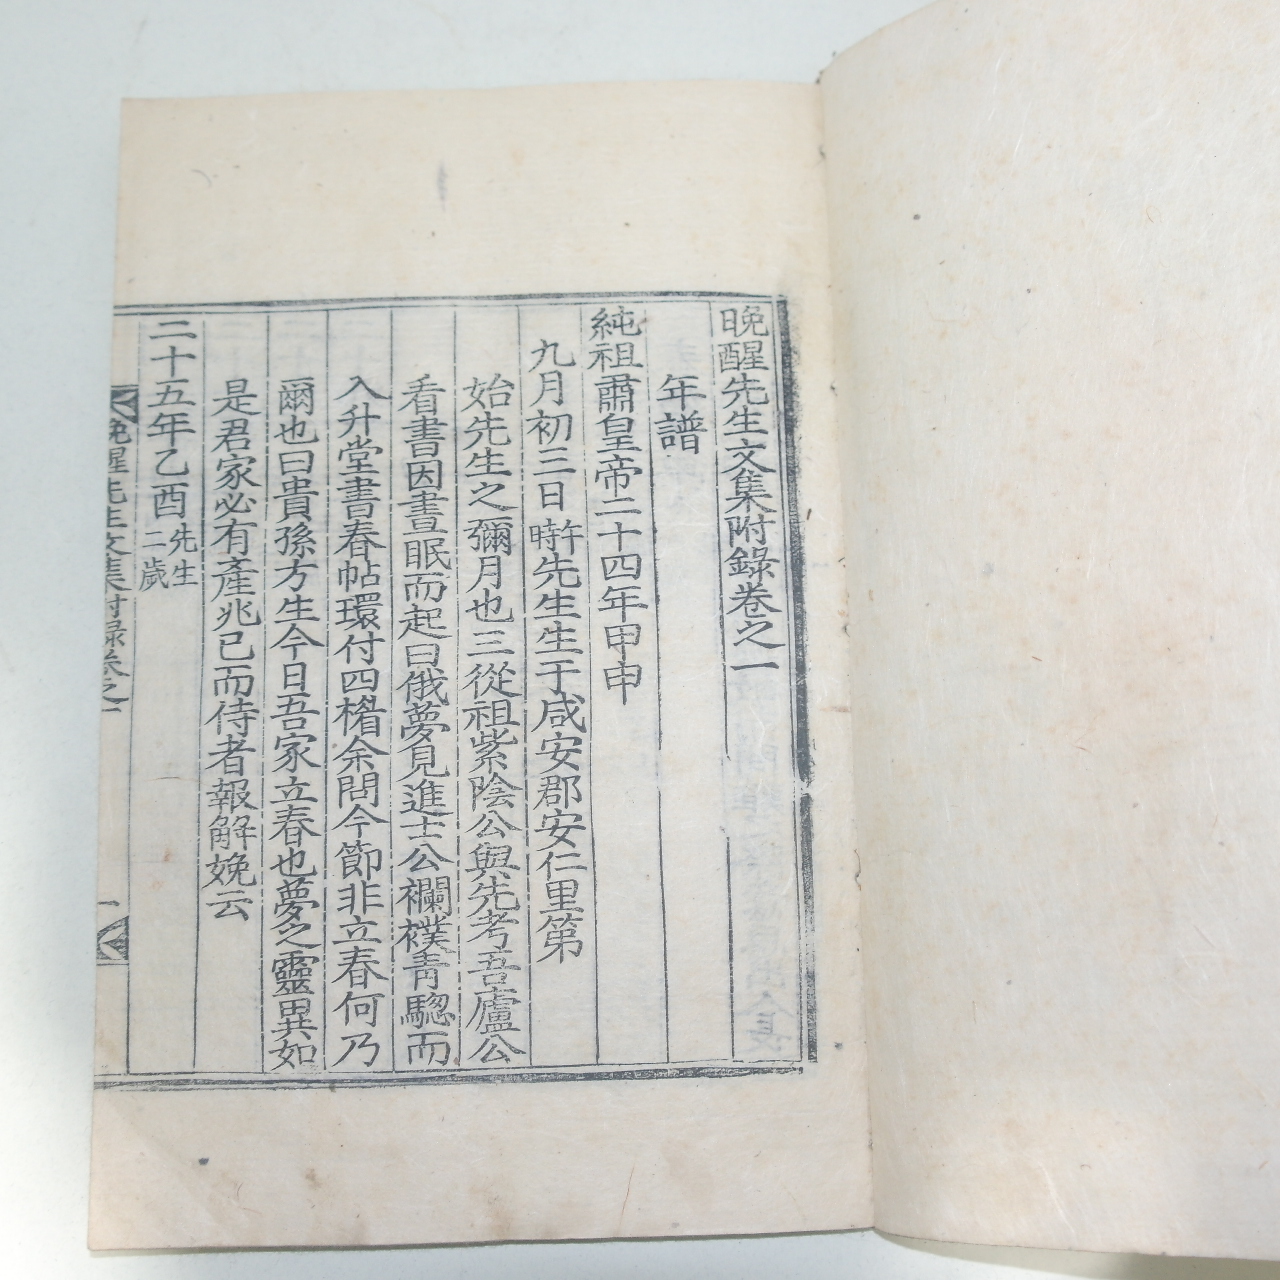 晚醒先生文集附錄卷之一
年譜
純祖肅皇帝二十四年甲申
九月初三日午時先生生于咸安郡安仁里第
始先生之彌月也三從祖紫陰公與先考吾廬公
看書因晝眠而起曰俄夢見進士公襴襆靑驄而
入升堂書春帖環付四楣余問今節非立春何乃
爾也曰貴孫方生今日吾家立春也夢之靈異如
是君家必有產兆已而侍者報解娩云
二十五年乙酉先生二歲
晚醒先生文集附錄卷之一
一